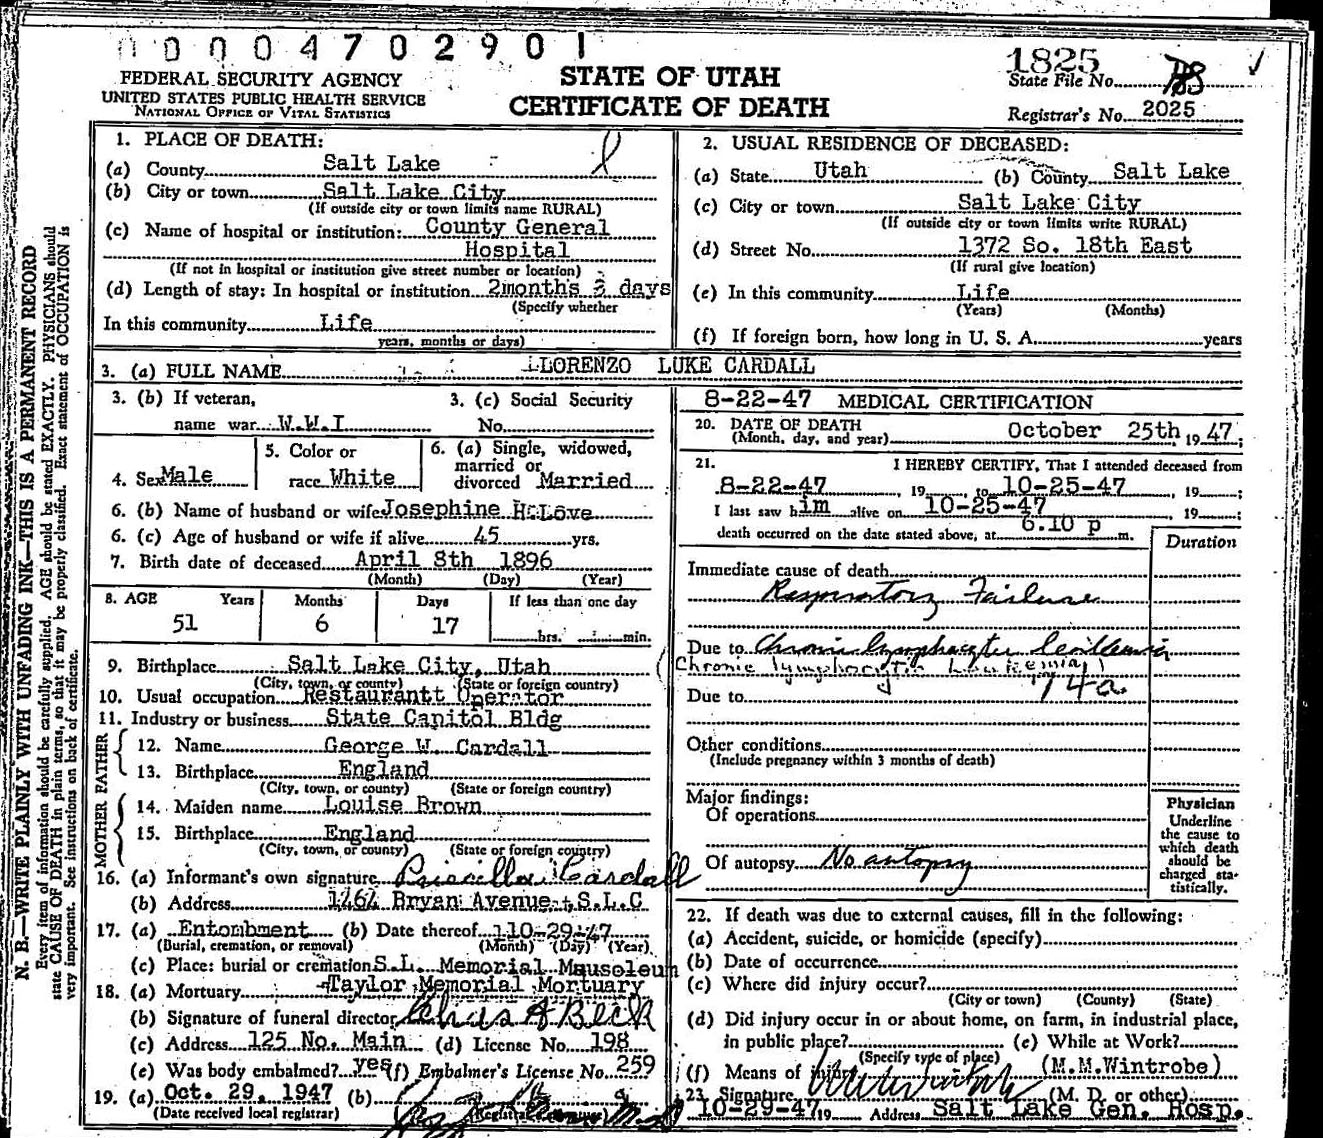 00004702901
FEDERAL SECURITY AGENCY
UNITED STATES PUBLIC HEALTH SERVICE
NATIONAL OFFICE OF VITAL STATISTICS
STATE OF UTAH
CERTIFICATE OF DEATH
1825
State File No.
Registrar's No. 2025
N. B.—WRITE PLAINLY WITH UNFADING INK—THIS IS A PERMANENT RECORD
Every item of information should be carefully supplied. AGE should be stated EXACTLY. PHYSICIANS should
state CAUSE OF DEATH in plain terms, so that it may be properly classified. Exact statement of OCCUPATION is
very important. See instructions on back of certificate.
1. PLACE OF DEATH:
(a) County Salt Lake
(b) City or town Salt Lake City
(If outside city or town limits name RURAL)
(c) Name of hospital or institution: County General
Hospital
(If not in hospital or institution give street number or location)
(d) Length of stay: In hospital or institution 2months 3 days
(Specify whether
In this community Life
years, months or days)
2. USUAL RESIDENCE OF DECEASED:
(a) State Utah (b) County Salt Lake
(c) City or town Salt Lake City
(If outside city or town limits write RURAL)
(d) Street No. 1372 So. 18th East
(If rural give location)
(e) In this community Life
(Years) (Months)
(f) If foreign born, how long in U. S. A. years
3. (a) FULL NAME LORENZO LUKE CARDALL
3. (b) If veteran, 3. (c) Social Security
name war W.W.I No.
4. Sex Male 5. Color or race White 6. (a) Single, widowed, married or divorced Married
6. (b) Name of husband or wife Josephine H. Love
6. (c) Age of husband or wife if alive 45 yrs.
7. Birth date of deceased April 8th 1896
(Month) (Day) (Year)
8. AGE Years Months Days If less than one day
51 6 17 hrs. min.
9. Birthplace Salt Lake City, Utah
(City, town, or county) (State or foreign country)
10. Usual occupation Restaurantt Operator
11. Industry or business State Capitol Bldg
FATHER
12. Name George W. Cardall
13. Birthplace England
(City, town, or county) (State or foreign country)
MOTHER
14. Maiden name Louise Brown
15. Birthplace England
(City, town, or county) (State or foreign country)
16. (a) Informant's own signature Priscilla Cardall
(b) Address Bryan Avenue, S.L.C
17. (a) Entombment (b) Date thereof 10-29-47
(Burial, cremation, or removal) (Month) (Day) (Year)
(c) Place: burial or cremation S.L. Memorial Mausoleum
18. (a) Mortuary Taylor Memorial Mortuary
(b) Signature of funeral director Chas A Beck
(c) Address 125 No. Main (d) License No. 198
(e) Was body embalmed? yes (f) Embalmer's License No. 259
19. (a) Oct. 29, 1947 (b)
(Date received local registrar)
8-22-47 MEDICAL CERTIFICATION
20. DATE OF DEATH
(Month, day, and year) October 25th 1947;
21. I HEREBY CERTIFY, That I attended deceased from
8-22-47, 19 to 10-25-47, 19 ;
I last saw him alive on 10-25-47, 19 ;
death occurred on the date stated above, at 6.10 p m.
Duration
Immediate cause of death
Respiratory Failure
Due to Chronic lymphocytic leukemia
(Chronic lymphocytic Leukemia)
74a
Due to
Other conditions
(Include pregnancy within 3 months of death)
Major findings:
Of operations
Of autopsy No autopsy
Physician
Underline
the cause to
which death
should be
charged sta-
tistically.
22. If death was due to external causes, fill in the following:
(a) Accident, suicide, or homicide (specify)
(b) Date of occurrence
(c) Where did injury occur?
(City or town) (County) (State)
(d) Did injury occur in or about home, on farm, in industrial place,
in public place? (e) While at Work?
(Specify type of place)
(f) Means of injury (M.M.Wintrobe)
23. Signature (M. D. or other)
10-29-47 19 Address Salt Lake Gen. Hosp.